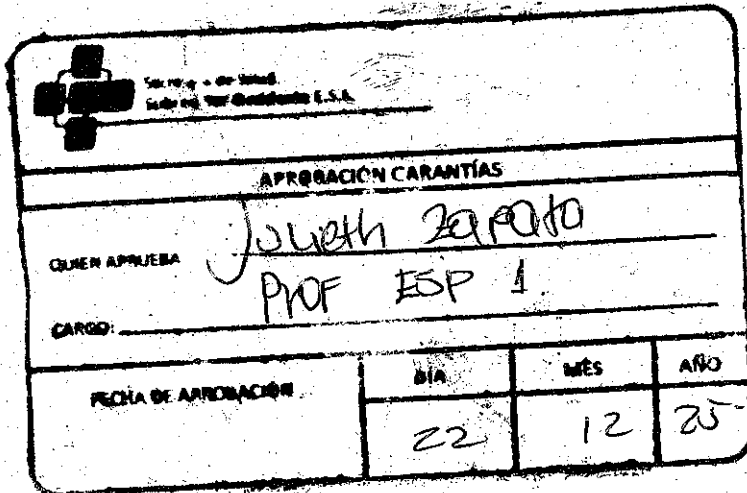 Secretaría de Salud
Subred Sur Occidente E.S.E.
APROBACIÓN GARANTÍAS
QUIEN APRUEBA Julieth Zapata
Prof ESP 1.
CARGO:
FECHA DE APROBACIÓN
DÍA MES AÑO
22 12 25